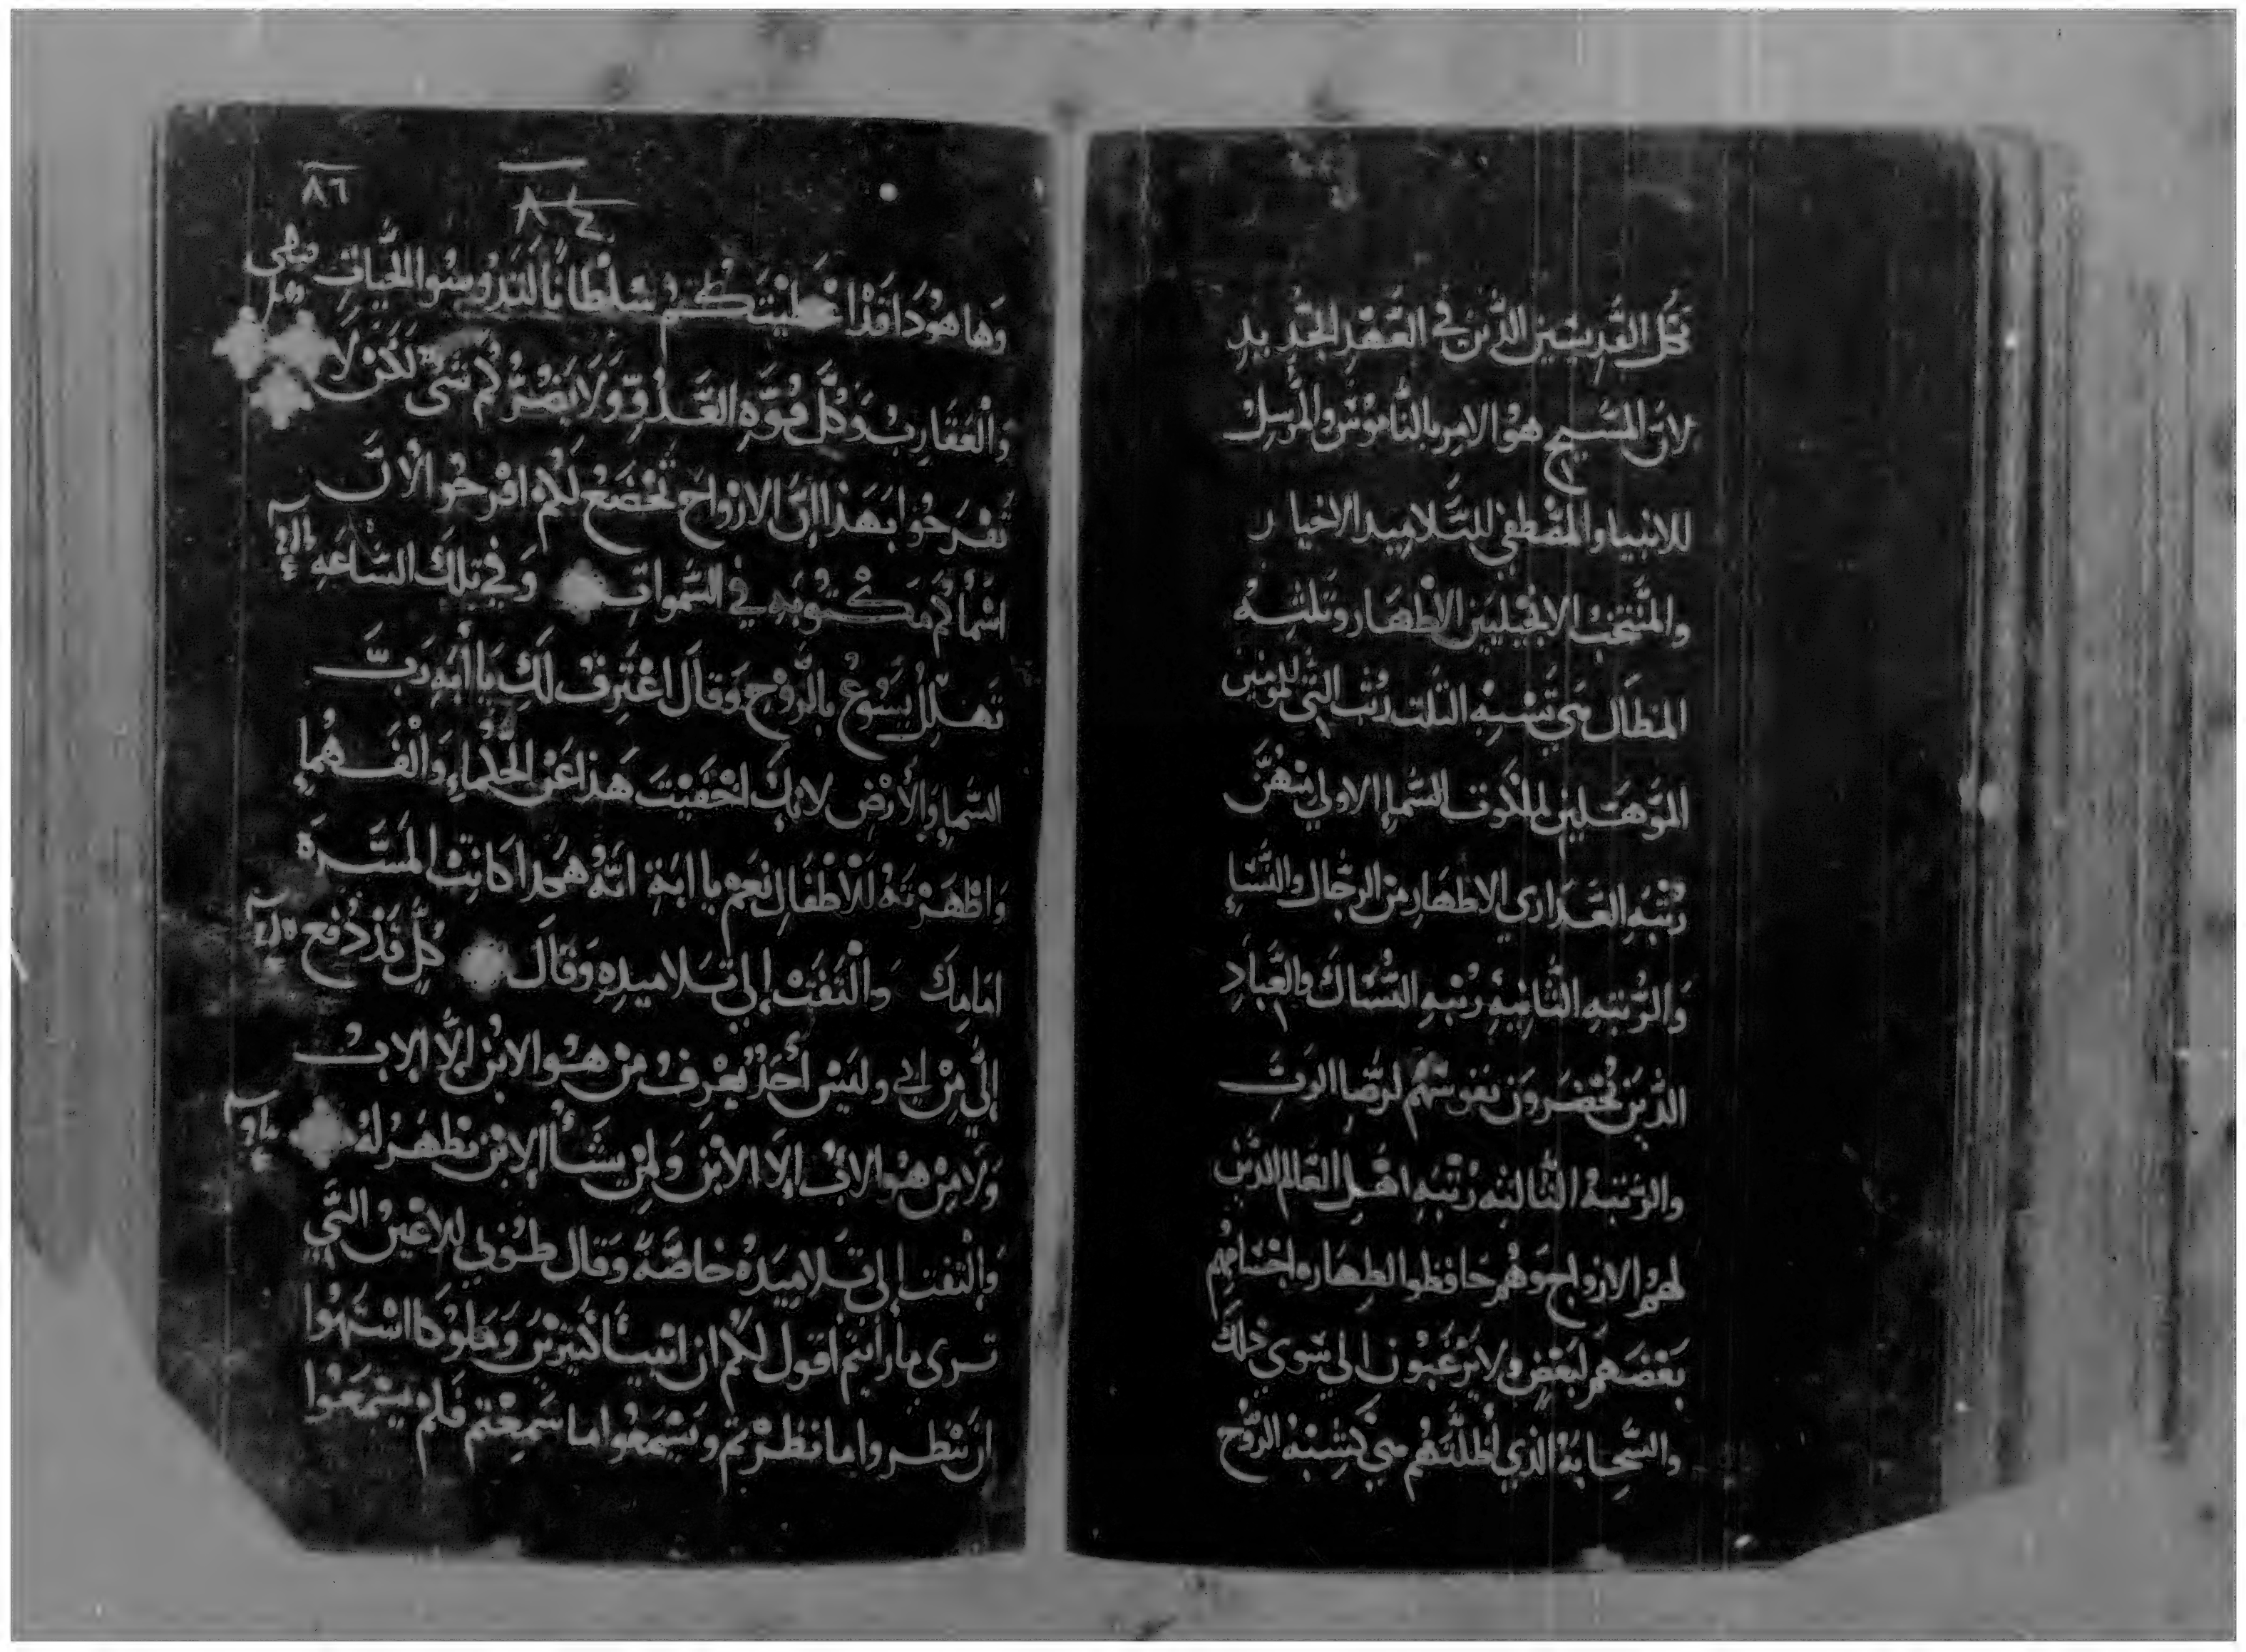 كل القديسين الذين في العهد الجديد
لان المسيح هو الامر بالناموس والمرسل
للانبيا والمصطفي للتلاميد الاخيار
والمنتخب الانجيليين الاطهار وتلتة
المطال هي تشبه التلت رتب التي للمومنين
الموهلين لملكوت السما الاولي منهن
رتبه العداري الاطهار من الرجال والنسا
والرتبه التانيه رتبه النساك والعباد
الدين نفوسهم لرضا الرب
والرتبة التالته رتبه اهل العالم الدين
لهم الازواج وهم حافظوا لطهاره اجسامهم
بعضهم لبعض ولا يرغبون الي سوي دلك
والسحابة الذي اظلتهم هي تشبه الروح
٨٦
٨٤
وَها هُودا قد اعطيتكم سلطانا لتدوسوا الحيات
والعقارب وكل قوة العدو ولا يضركم شي لكن لا
تفرحوا بهذا ان الارواح تخضع لكم افرحوا لان
اسماكم مكتوبه في السموات وفي تلك الساعه
تهلل يسوع بالروح وقال اعترف لك يا أبه رب
السما والأرض لانك اخفيت هذا عن الحكماء والفهماء
واظهرته للأطفال نعم يا ابة انه هكدا كانت المسرة
امامك والتفت إلي تلاميده وقال كل قد دفع
إلي من ابي وليس أحد يعرف من هو الابن إلا الاب
ولا من هو الاب إلا الابن ولمن يشأ الابن يظهر له
والتفت إلى تلاميده خاصة وقال طوبي للاعين التي
تري ما رأيتم أقول لكم ان انبيأ كثيرين وملوكا اشتهوا
ان ينظروا ما نظرتم ويسمعوا ما سمعتم فلم يسمعوا